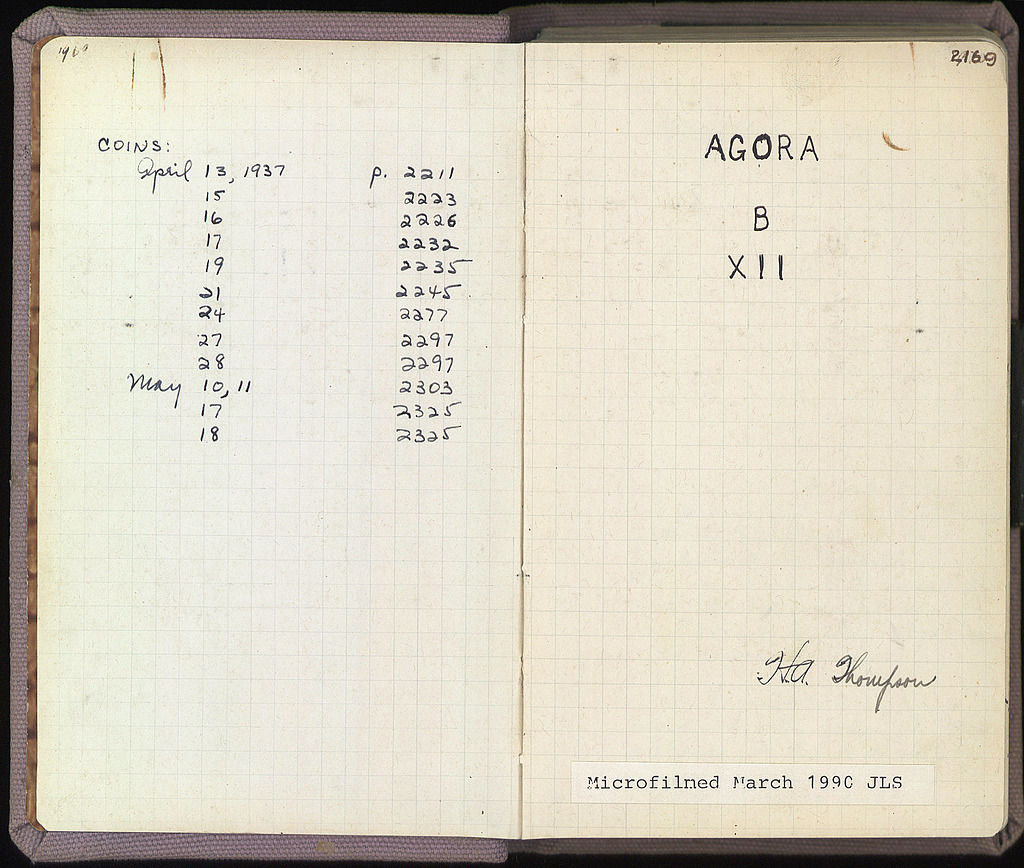 COINS:
April 13, 1937 p. 2211
15 2223
16 2226
17 2232
19 2235
21 2245
24 2277
27 2297
28 2297
May 10, 11 2303
17 2325
18 2325
2169
AGORA
B
XII
H.A. Thompson
Microfilmed March 1990 JLS